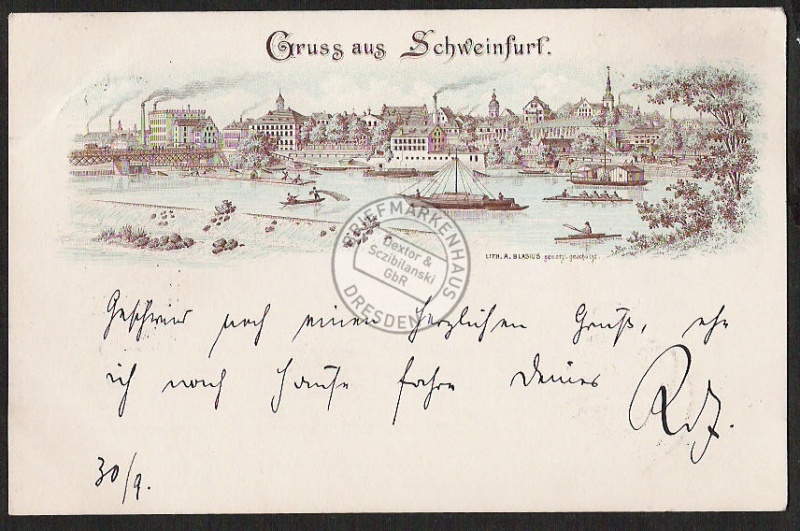 Gruss aus Schweinfurt.
LITH. A. BLASIUS gesetzl. geschützt.
BRIEFMARKENHAUS
Dextor &
Sczibilanski
GbR
DRESDEN
noch einen herzlichen Gruß, ehe
ich nach Hause fahre Deines
30/9.